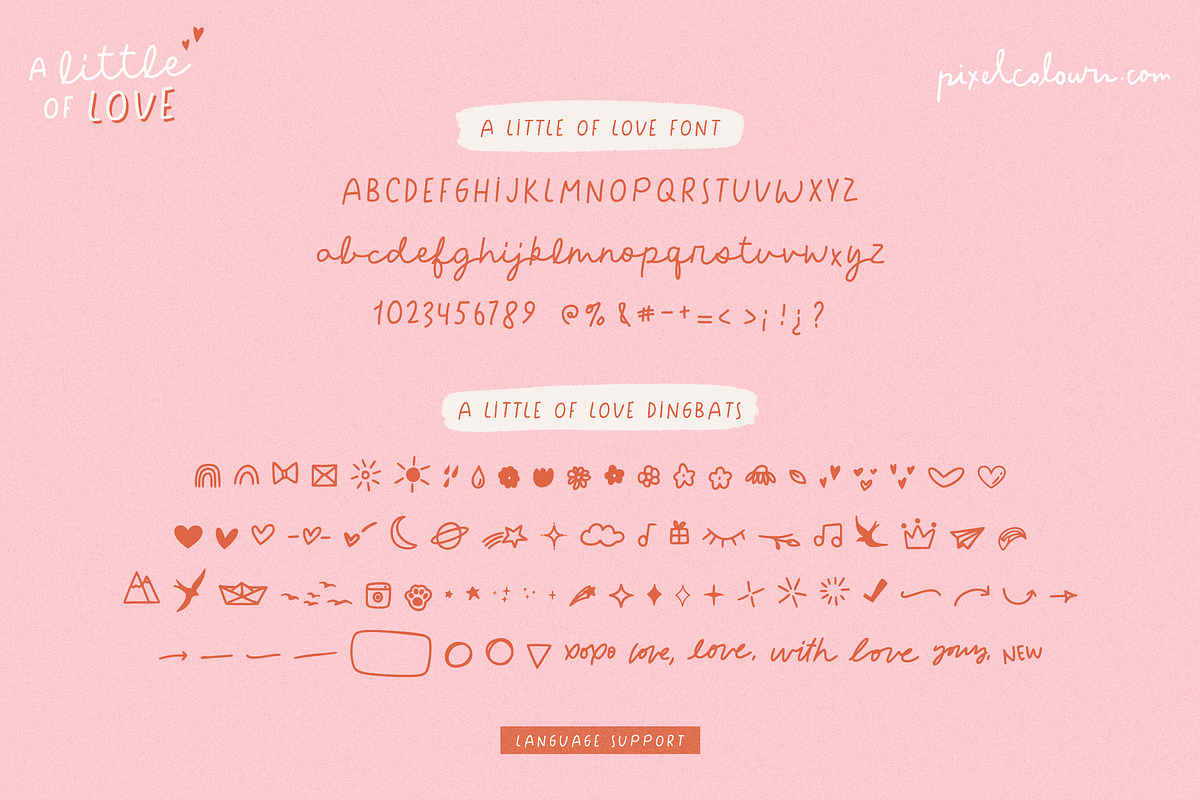 A little
OF LOVE
pixelcolours.com
A LITTLE OF LOVE FONT
ABCDEFGHIJKLMNOPQRSTUVWXYZ
abcdefghijklmnopqrstuvwxyz
1023456789 @%&#-+=<>¡!¿?
A LITTLE OF LOVE DINGBATS
xoxo love, love, with love yours, NEW
LANGUAGE SUPPORT